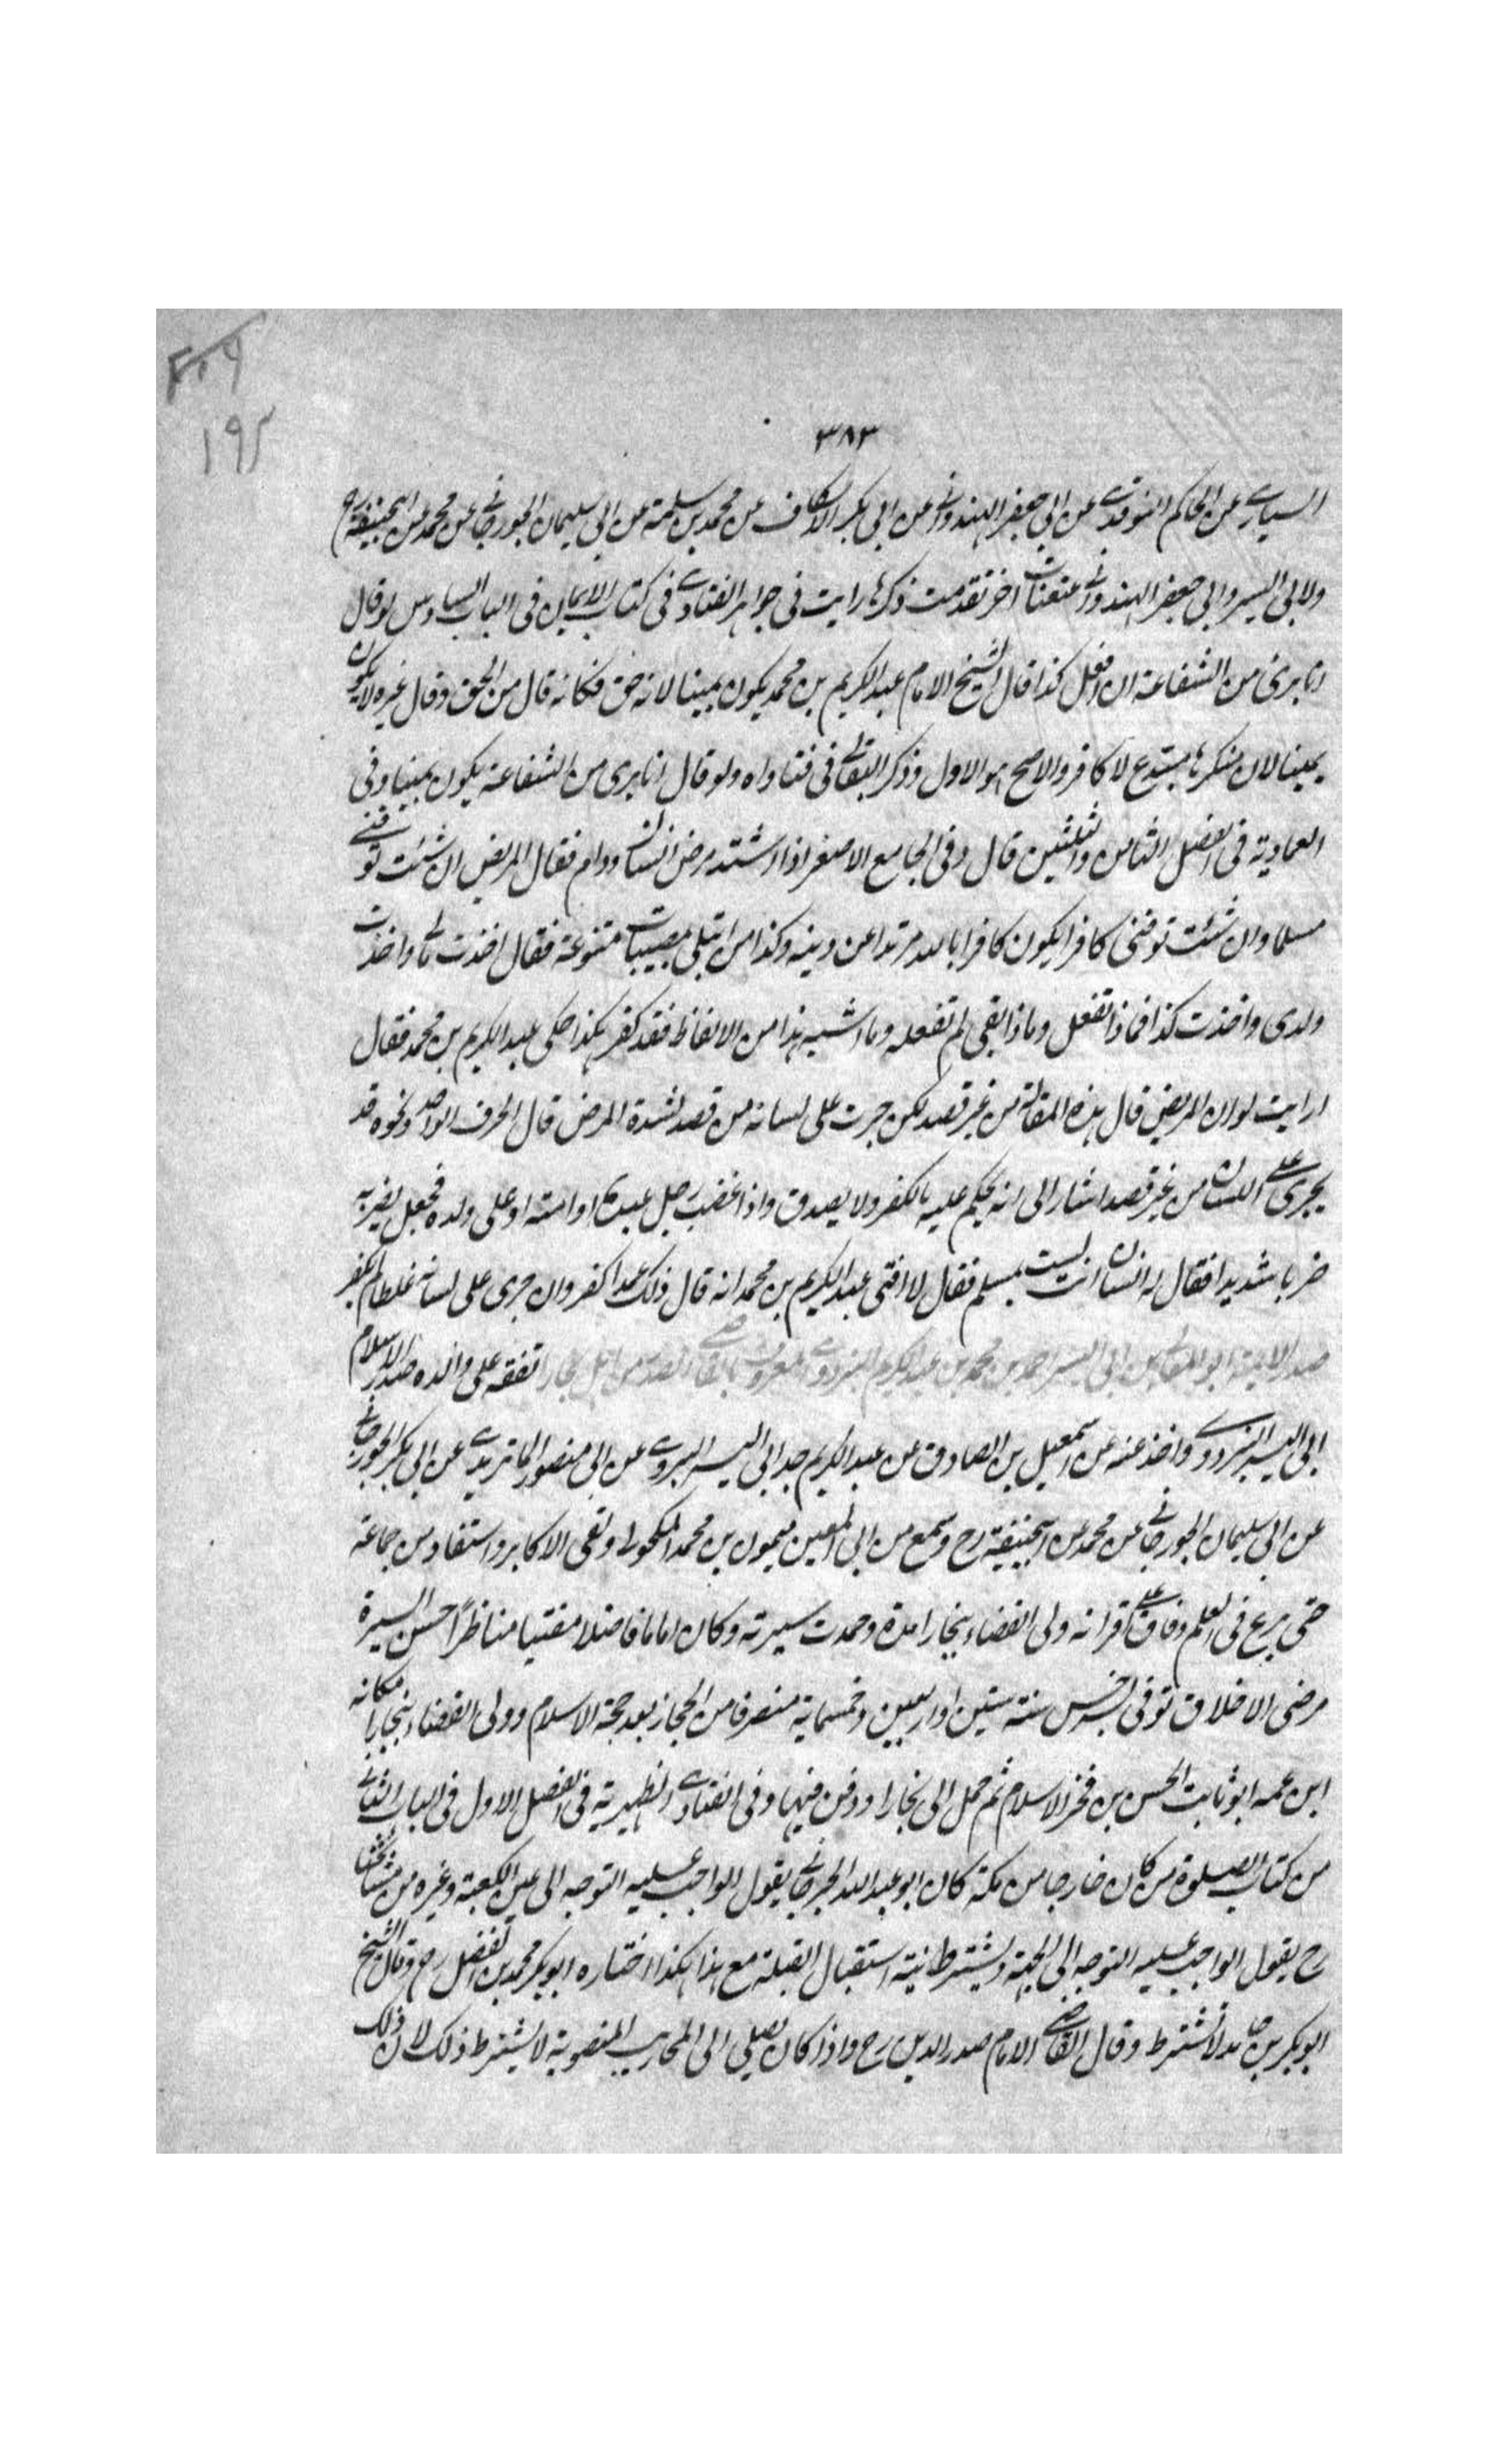 ٤٠٩
١٩٢
٣٨٣
السيارى عن الحاكم النوقدى عن ابى جعفر الهندوانى عن ابى بكر الاسكاف عن محمد بن سلمة عن ابى سليمان الجوزجانى عن محمد عن ابيحنيفة رح
ولابى اليسر وابى جعفر الهندوانى عنعنات اخر تقدمت ذكرها رايت فى جواهر الفتاوى فى كتاب الايمان فى الباب السادس لو قال
انا برئ من الشفاعة ان افعل كذا قال الشيخ الامام عبد الكريم بن محمد يكون يمينا لانه حق فكانه قال من الحق وقال غيره لا يكون
يمينا لان منكرها مبتدع لا كافر والاصح هو الاول وذكر البقالى فى فتاواه ولو قال انا برى من الشفاعة يكون يمينا وفى
العمادية فى الفصل الثامن والثلثين قال وفى الجامع الاصغر اذا اشتد مرض انسان ودام فقال المريض ان شئت توفنى
مسلما وان شئت توفنى كافرا يكون كافرا بالله مرتدا عن دينه وكذا من ابتلى بمصيبات متنوعة فقال اخذت مالى واخذت
ولدى واخذت كذا فماذا تفعل وماذا بقى لم تفعله وما اشبه هذا من الالفاظ فقد كفر هكذا حكى عبد الكريم بن محمد فقال
ارايت لو ان المريض قال هذه المقالة من غير قصد لكن جرت على لسانه من قصد لشدة المرض قال الحرف الواحد ونحوه قد
يجرى على اللسان من غير قصد اشار الى انه يحكم عليه بالكفر ولا يصدق واذا غضب رجل عبده او امته او على ولده فجعل يضربه
ضربا شديدا فقال له انسان انت لست بمسلم فقال لا افتى عبد الكريم بن محمد انه قال ذلك عمدا كفر وان جرى على لسانه غلطا لم يكفر
صدر الايمة ابو المعالى بن ابى اليسر احمد بن محمد بن عبد الكريم البزدوى المعروف بالقاضى الصدر من اهل بخارا تفقه على والده صدر الاسلام
ابى اليسر البزدوى واخذ عنه عن اسمعيل بن الصادق عن عبد الكريم جد ابى اليسر البزدوى عن ابى منصور الماتريدى عن ابى بكر الجوزجانى
عن ابى سليمان الجوزجانى عن محمد عن ابيحنيفة رح وسمع من ابى المعين ميمون بن محمد المكحولى ولقى الاكابر واستفاد من جماعة
حتى برع فى العلم وفاق على اقرانه ولى القضاء ببخارا مدة وحمدت سيرته وكان اماما فاضلا مفتيا مناظرًا حسن السيرة
مرضى الاخلاق توفى بسرخس سنة ستين اواربعين وخمسماية منصرفا من الحجاز بعد حجة الاسلام وولى القضاء ببخارا مكانه
ابن عمه ابو ثابت الحسن بن فخر الاسلام ثم حمل الى بخارا ودفن فيها وفى الفتاوى الظهيرية فى الفصل الاول فى الباب الثانى
من كتاب الصلوة من كان خارجا من مكة كان ابو عبد الله الجرجانى يقول الواجب عليه التوجه الى عين الكعبة وغيره من مشائخنا
رح يقول الواجب عليه التوجه الى الجهة ويشترط نية استقبال القبلة مع هذا هكذا اختاره ابو بكر محمد بن الفضل رح وقال الشيخ
ابو بكر بن حامد لا تشترط وقال القاضى الامام صدر الدين رح واذا كان يصلى الى المحاريب المنصوبة لا يشترط ذلك لان ذلك